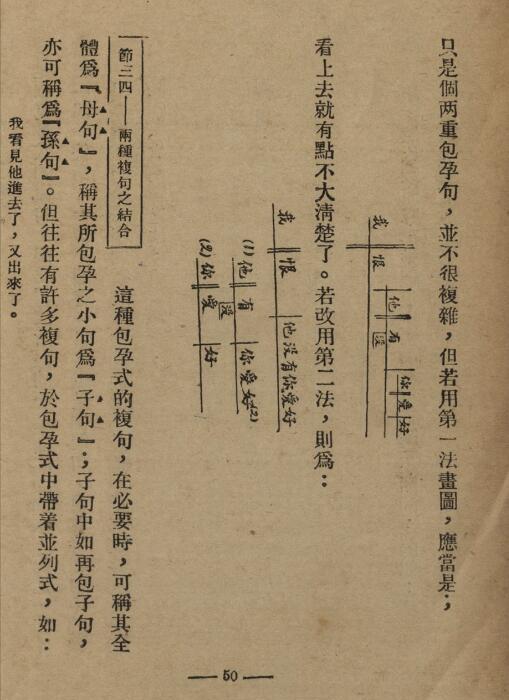 只是個两重包孕句，並不很複雜，但若用第一法畫圖，應當是：
我 恨
他 有
沒
你 愛 好
看上去就有點不大清楚了。若改用第二法，則爲：
我 恨 他沒有你愛好
(1) 他 有 你愛好(2)
沒
(2) 你 愛 好
節三四——兩種複句之結合
這種包孕式的複句，在必要時，可稱其全
體爲『母句』，稱其所包孕之小句爲『子句』；子句中如再包子句，
亦可稱爲『孫句』。但往往有許多複句，於包孕式中帶着並列式，如：
我看見他進去了，又出來了。
50